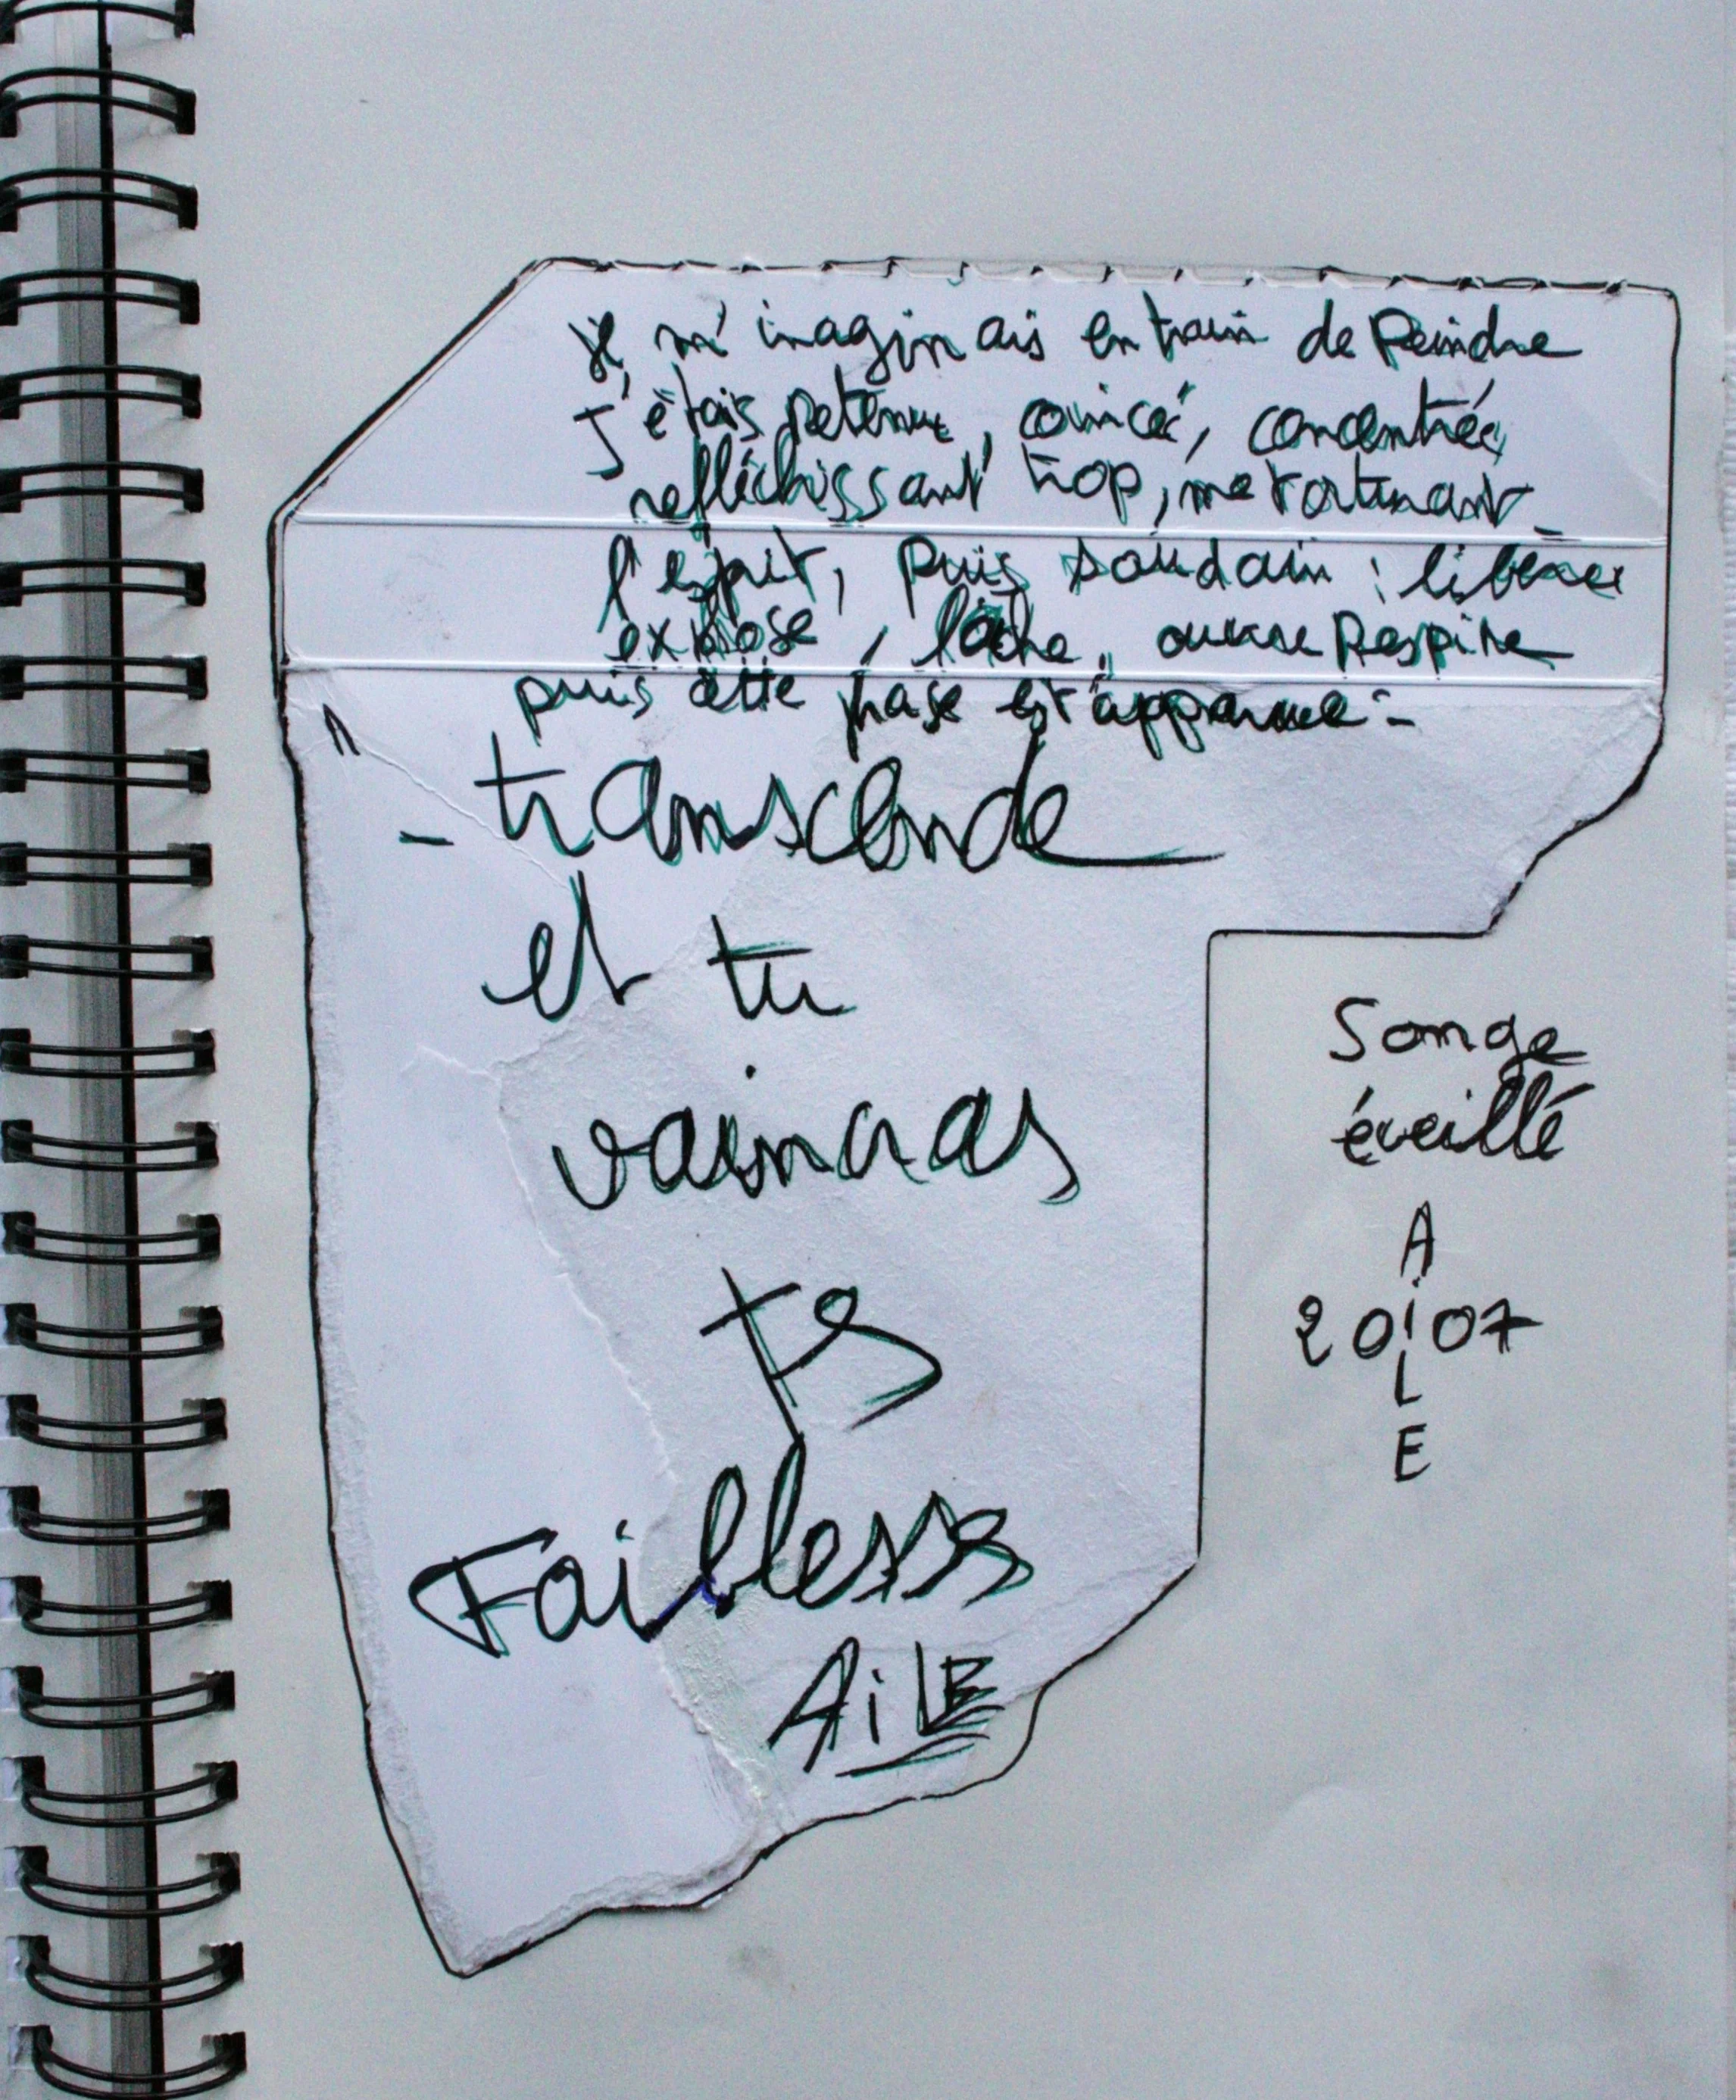 je m'imaginais en train de Peindre
J'étais retenue, coincée, concentrée,
refléchissant trop, me torturant
l'esprit, puis soudain : libérer
explose, lâche, ouvre Respire
puis cette phrase est apparue :
- transcende
et tu
vaincras
ts
Faibless
AiLE
Songe
éveillé
A
20 I 07
L
E